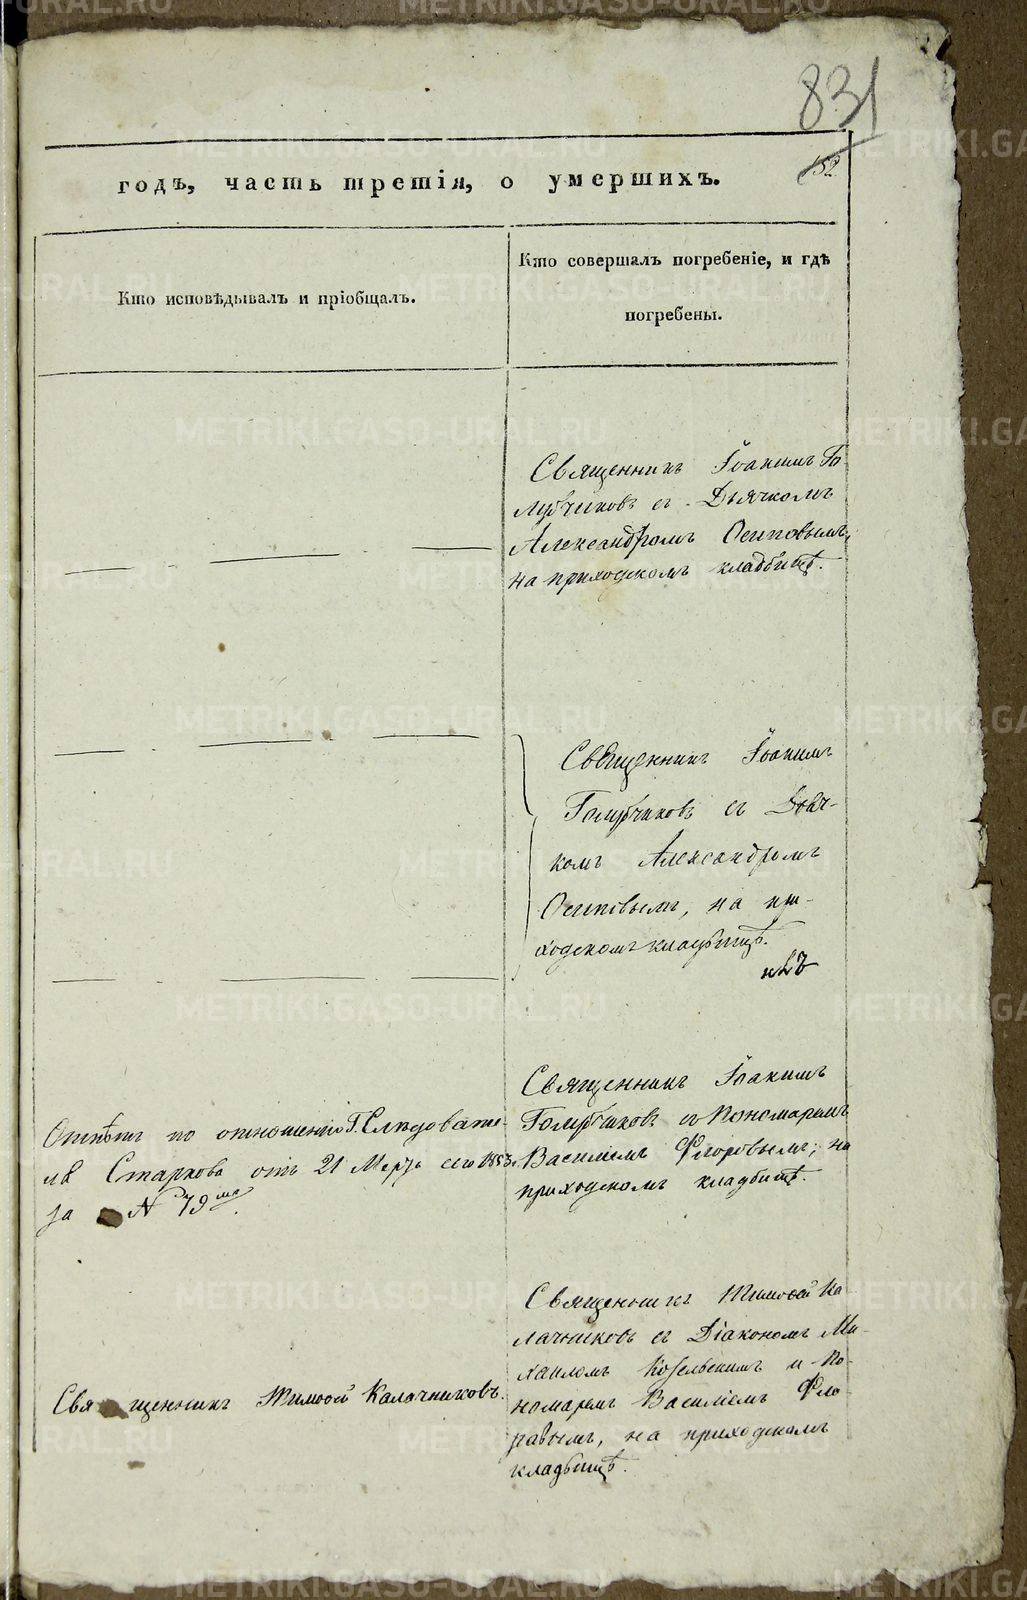 831
152
годъ, часть третія, о умершихъ.
Кто исповѣдывалъ и пріобщалъ.
Кто совершалъ погребеніе, и гдѣ
погребены.
Священникъ Іоакимъ Го-
лубчиковъ съ Дьячкомъ
Александромъ Осиповымъ,
на приходскомъ кладбищѣ.
Священникъ Іоакимъ
Голубчиковъ съ Дьяч-
комъ Александромъ
Осиповымъ, на при-
ходскомъ кладбищѣ.
Отпѣтъ по отношенію Г. Слѣдовате-
ля Старкова отъ 21 Марта сего 1853.
за N 79мъ.
Священникъ Іоакимъ
Голубчиковъ съ Пономаремъ
Василіемъ Флоровымъ, на
приходскомъ кладбищѣ.
Священникъ Тимофей Калачниковъ.
Священникъ Тимофей Ка-
лачниковъ съ Діакономъ Ми-
хаиломъ Козельскимъ и По-
номаремъ Василіемъ Фло-
ровымъ, на приходскомъ
кладбищѣ.
METRIKI.GASO-URAL.RU